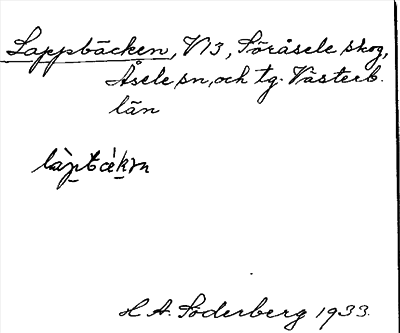 Lappbäcken, V 3, Söråsele skog,
Åsele sn, och tg. Västerb.
län
H A. Söderberg 1933.